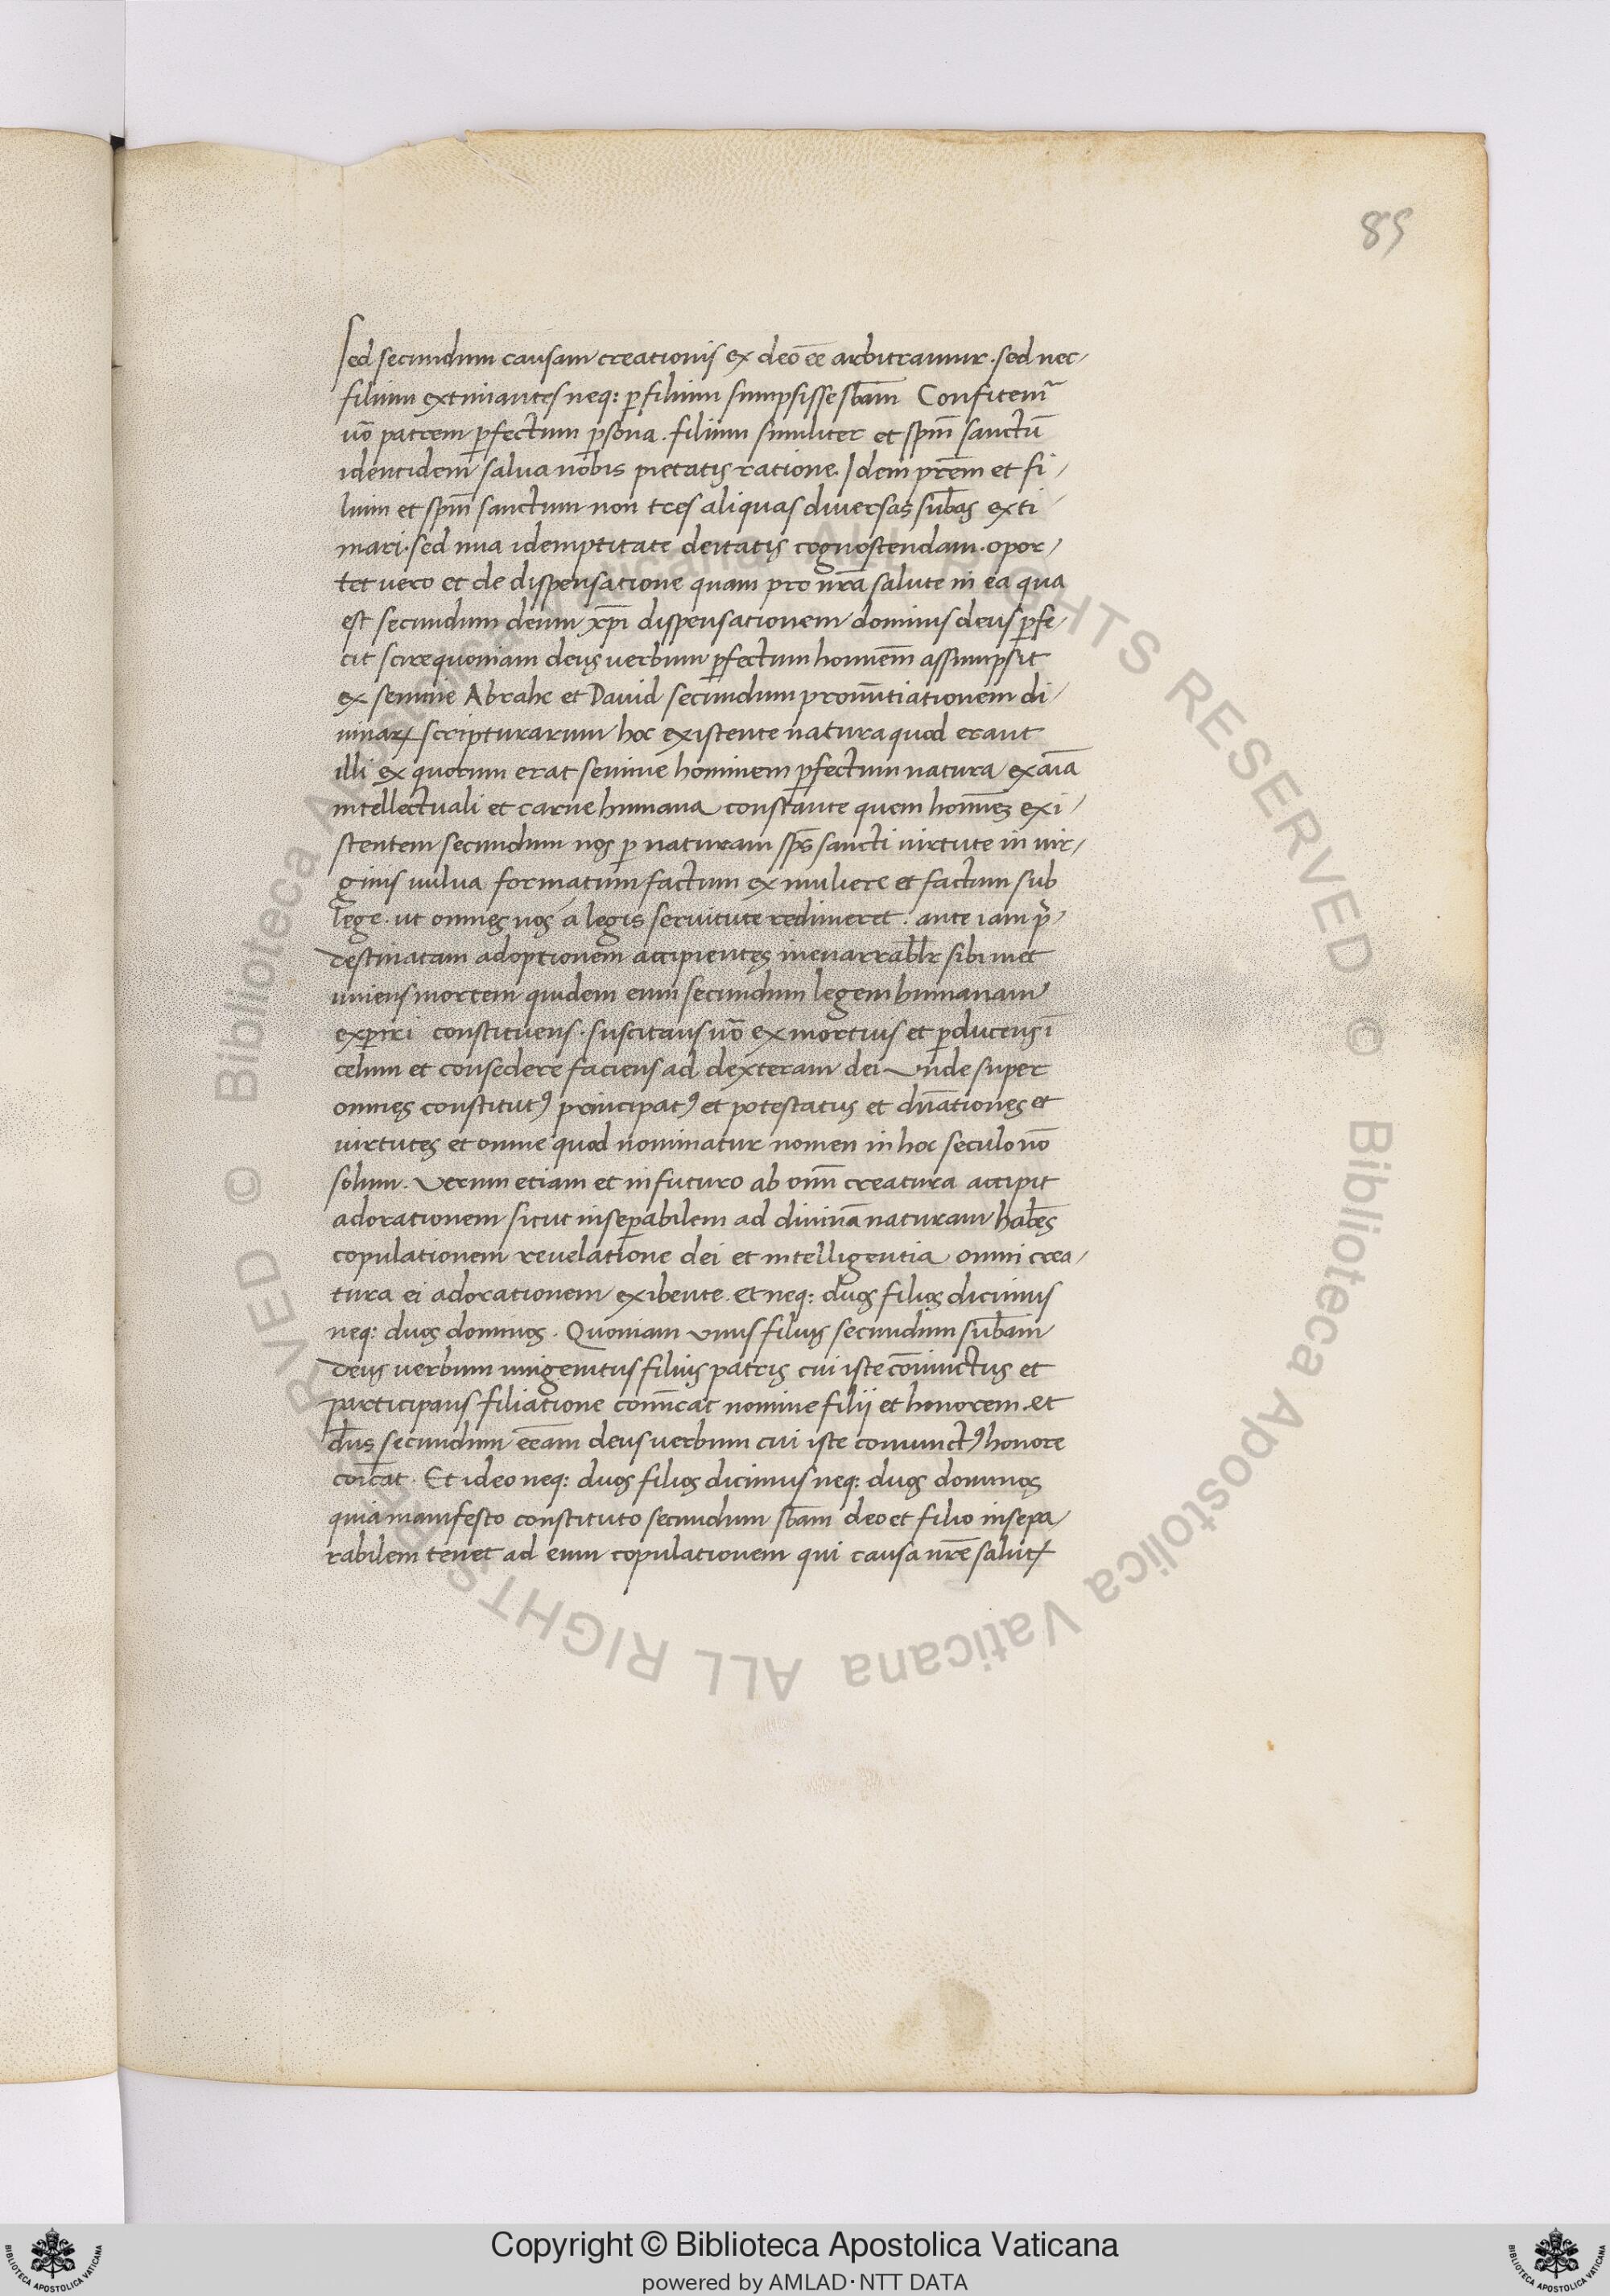 85
Sed secundum causam creationis ex deo e͞e arbitramur. sed nec
filium extimantes neq: ꝑ filium sumpsisse sb͞am Confitem͞r
u͞o patrem ꝑfectum ꝑsona. filium similiter et sp͞m sanctu͞
identidem salua nobis pietatis ratione. Idem pr͞em et fi/
lium et sp͞m sanctum non tres aliquas diuersas sub͞as exti
mari. sed una idemptitate deitatis cognoscendam. opor/
tet uero et de dispensatione quam pro nr͞a salute in ea qua
est secundum deum xp͞i dispensationem dominus deus ꝑfe/
cit scire quoniam deus uerbum ꝑfectum homine͞m assumpsit
ex semine Abrahe et Dauid secundum pronu͞tiationem di/
uinaꝝ scripturarum hoc existente natura quod erant
illi ex quorum erat semine hominem ꝑfectum natura ex a͞ia
intellectuali et carne humana constante quem homi͞ez exi/
stentem secundum nos ꝑ naturam sp͞s sancti uirtute in uir/
ginis uulua formatum factum ex muliere et factum sub
lege. ut omnes nos a legis seruitute redimeret. ante iam p͞r/
destinatam adoptionem accipientes inenarrabl͞r sibimet
uniens mortem quidem eum secundum legem humanam
exꝑiri constituens. suscitans u͞o ex mortuis et ꝑducens i͞
celum et consedere faciens ad dexteram dei Vnde super
omnes constitutꝰ principatꝰ et potestatus et dn͞ationes et
uirtutes et omne quod nominatur nomen in hoc seculo no͞
solum. Verum etiam et in futuro ab omn͞ creatura accipit
adorationem sicut insepabilem ad diuina͞ naturam habe͞s
copulationem reuelatione dei et intelligentia omni crea/
tura ei adorationem exibente. Et neq: duos filios dicimus
neq: duos dominos. Quoniam Vnus filius secundum sub͞am
Deus uerbum unigenitus filius patris cui iste co͞iunctus et
participans filiatione comu͞icat nomine filij et honorem. et
dn͞s secundum ee͞am deus uerbum cui iste coniunctꝰ honore
coi͞cat. Et ideo neq: duos filios dicimus neq: duos dominos
quia manifesto constituto secundum sb͞am deo et filio insepa/
rabilem tenet ad eum copulationem qui causa nr͞e salutꝭ
© Biblioteca Apostolica Vaticana ALL RIGHTS RESERVED © Biblioteca Apostolica Vaticana ALL RIGHTS RESERVED
Copyright © Biblioteca Apostolica Vaticana
powered by AMLAD·NTT DATA
BIBLIOTECA APOSTOLICA VATICANA
BIBLIOTECA APOSTOLICA VATICANA